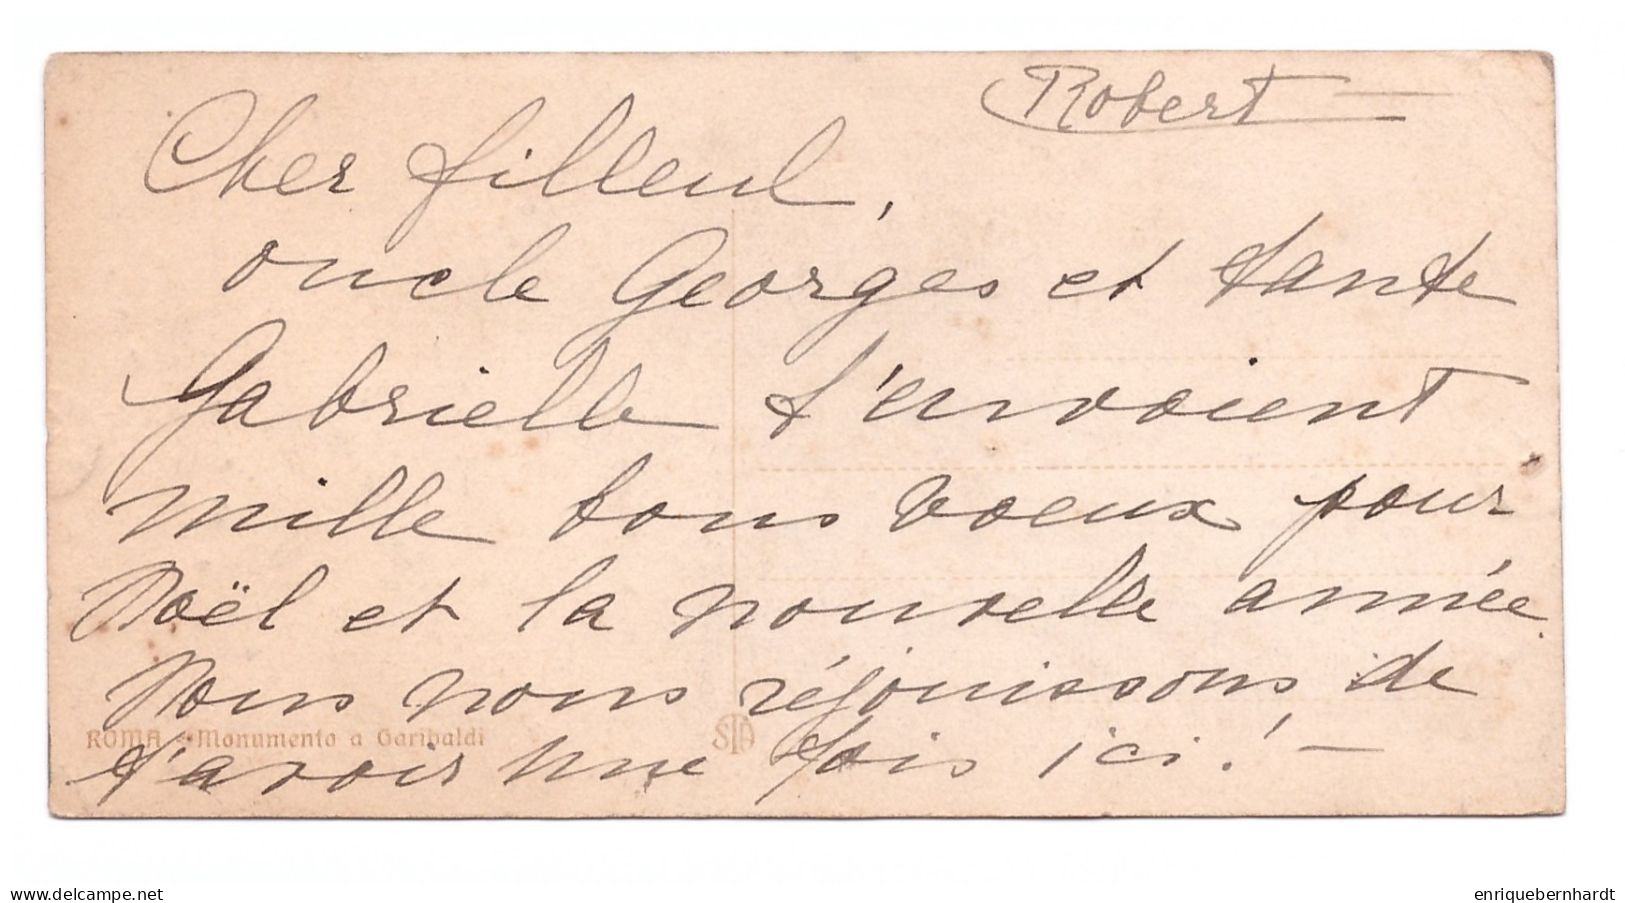 Robert
Cher filleul,
oncle Georges et tante
Gabrielle t'envoient
mille bons voeux pour
Noël et la nouvelle année.
Nous nous réjouissons de
ROMA - Monumento a Garibaldi
STA
t'avoir une fois ici! —
www.delcampe.net
enriquebernhardt